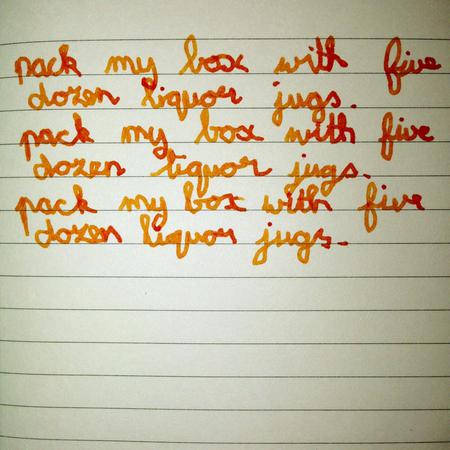 pack my box with five
dozen liquor jugs.
pack my box with five
dozen liquor jugs.
pack my box with five
dozen liquor jugs.